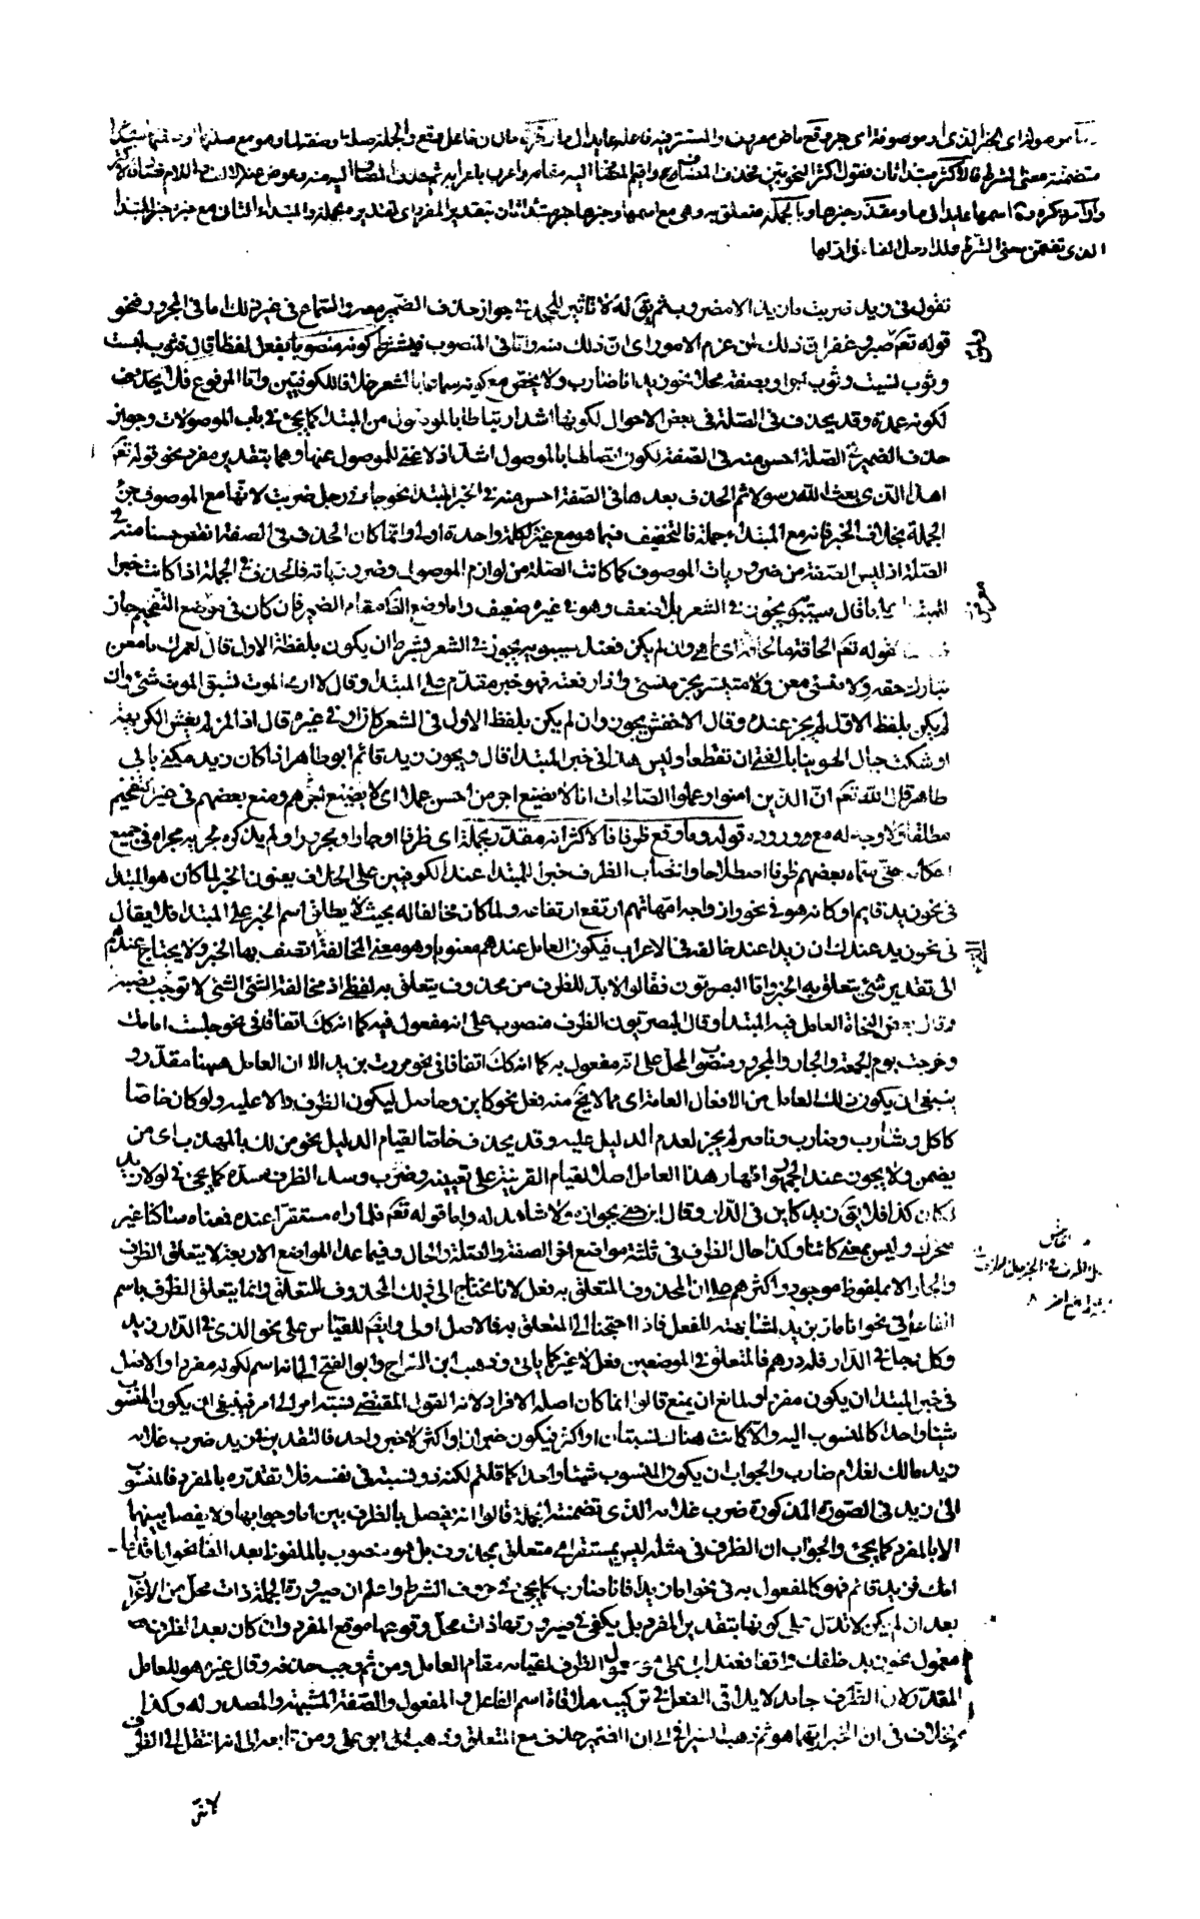 موصولة اى الخبر الذى او موصوفة اى جر وقع ماض معروف والمستتر فيه فاعله عايد الى ما ظرفا مع فاعل وقع والجملة صلة او صفة لما وهو مع صلتها او صفتها مبتدا
متضمنة معنى الشرط فالاكثر مبتدا ثان فقول اكثر النحويين فحذف المضاف واقيم المضاف اليه مقامه واعرب باعرابه ثم حذف المضاف اليه منه وعوض عنه الالف واللام
اسمها عايد الى ما ومقدر خبرها وبالجملة متعلق به وهى مع اسمها وخبرها خبر مبتدا ثان بتقدير المفرد اى تقديره بجملة والمبتداء الثانى مع خبره خبر المبتدا
الذى تضمن معنى الشرط فلذا دخل الفاء فى اولها
تقول فى زيد ضربت ما زيد الا مضروب ثم يق له لا تاثير للجحد فى جواز حذف الضمير معه والسماع فى غير ذلك اما فى المجرور فنحو
قوله تعم صبر وغفر ان ذلك لمن عزم الامور اى ان ذلك منه واما فى المنصوب فيشترط كونه منصوبا بفعل لفظا قال فثوب لبست
وثوب نسيت وثوب اجر او بصفة محلا نحو زيد انا ضارب ولا يختص مع كونه سماعا بالشعر خلافا للكوفيين واما المرفوع فلا يحذف
لكونه عمدة وقد يحذف فى الصلة فى بعض الاحوال لكونها اشد ارتباطا بالموصول من المبتدا كما يجئ فى باب الموصولات وجواز
حذف الضمير فى الصلة احسن منه فى الصفة لكون اتصالها بالموصول اشد اذ لا غنى للموصول عنها وهما بتقدير مفرد نحو قوله تعم
اهذا الذى بعث الله رسولا ثم الحذف بعدها فى الصفة احسن منه فى الخبر المبتدا نحو جاءنى رجل ضربت لانها مع الموصوف جزء
الجملة بخلاف الخبر فانه مع المبتداء جملة فالتخفيف فيما هو مع غيره ككلمة واحدة اولى وانما كان الحذف فى الصفة انقص حسنا منه فى
الصلة اذ ليس الصفة من ضروريات الموصوف كما كانت الصلة من لوازم الموصول وضرورياته فالحذف فى الجملة اذا كانت خبرا
للمبتدا قال سيبويه يجوز فى الشعر بلا ضعف وهو فى غيره ضعيف واما وضع الظاهر مقام الضمير فان كان فى موضع التفخيم جاز
كقوله تعم الحاقة ما الحاقة اى ما هى وان لم يكن فعند سيبويه يجوز فى الشعر بشرط ان يكون بلفظة الاول قال لعمرك ما معن
بتارك حقه ولا منسئ معن ولا متيسر بجر منسئ واذا رفعته فهو خبر مقدم على المبتدا وقال لا ارى الموت يسبق الموت شئ وان
لم يكن بلفظ الاول لم يجز عنده وقال الاخفش يجوز وان لم يكن بلفظ الاول فى الشعر كان او فى غيره قال اذا المرء لم يغش الكريهة
اوشكت حبال الهوينا بالفتى ان تقطعا وليس هذا فى خبر المبتدا قال ويجوز زيد قائم ابو طاهر اذا كان زيد مكنى بابى
طاهر قال الله تعم ان الذين امنوا وعملوا الصالحات انا لا نضيع اجر من احسن عملا اى لا نضيع اجرهم ومنع بعضهم فى غير التفخيم
مطلقا ولا وجه له مع وروده قوله وما وقع ظرفا فالاكثر انه مقدر بجملة اى ظرفا او جارا ومجرورا ولم يذكره مجريه مجراه فى جميع
احكامه حتى سماه بعضهم ظرفا اصطلاحا وانتصاب الظرف خبرا للمبتداء عند الكوفيين على الخلاف يعنون الخبر لما كان هو المبتدا
فى نحو زيد قايم او كانه هو فى نحو وازواجه امهاتهم ارتفع ارتفاعه ولما كان مخالفا له بحيث لا يطلق اسم الخبر على المبتدا فلا يقال
فى نحو زيد عندك ان زيدا عند خالفه فى الاعراب فيكون العامل عندهم معنويا وهو معنى المخالفة التى اتصف بها الخبر ولا يحتاج عندهم
الى تقدير شئ يتعلق به الخبر واما البصريون فقالوا لا بد للظرف من محذوف يتعلق به لفظى اذ مخالفة الشئ الشئ لا توجب نصبه
وقال بعض النحاة العامل فيه المبتدا وقال البصريون الظرف منصوب على انه مفعول فيه كما انه كك اتفاقا فى نحو جلست امامك
وخرجت يوم الجمعة والجار والمجرور منصوب المحل على انه مفعول به كما انه كك اتفاقا فى نحو مررت بزيد الا ان العامل ههنا مقدر و
ينبغى ان يكون ذلك العامل من الافعال العامة اى مما لا يخ منه فعل نحو كاين وحاصل ليكون الظرف دالا عليه ولو كان خاصا
كاكل وشارب وضارب وناصر لم يجز لعدم الدليل عليه وقد يحذف خاصا لقيام الدليل نحو من لك بالمهذب اى من
يضمن ولا يجوز عند الجمهور اظهار هذا العامل اصلا لقيام القرينة على تعيينه وضرب وسد الظرف مسده كما يجئ فى لولا زيد
لكان كذا فلا يق زيد كاين فى الدار وقال ابن جنى بجوازه ولا شاهد له واما قوله تعم فلما راه مستقرا عنده فمعناه ساكنا غير
متحرك وليس بمعنى كائنا وكذا حال الظرف فى ثلثة مواضع اخر الصفة والصلة والحال وفيما عدا المواضع الاربعة لا يتعلق الظرف
والجار الا بملفوظ موجود واكثرهم على ان المحذوف المتعلق به فعل لانا نحتاج الى ذلك المحذوف للمتعلق وانما يتعلق الظرف باسم
الفاعل فى نحو انا مار بزيد لمشابهته للفعل فاذا احتجنا الى المتعلق به فالاصل اولى وايضا للقياس على نحو الذى فى الدار زيد
وكل رجل فى الدار فله درهم فالمتعلق فى الموضعين فعل لا غير كما ياتى وذهب ابن السراج وابو الفتح الى انه اسم لكونه مفردا والاصل
فى خبر المبتدا ان يكون مفردا ولمانع ان يمنع قالوا انما كان اصله الافراد لانه القول المقتضى نسبة امر الى امر فينبغى ان يكون المنسوب
شيئا واحدا كالمنسوب اليه والا كانت هناك نسبتان او اكثر فيكون خبران او اكثر لا خبر واحد فالتقدير فى زيد ضرب غلامه
زيد مالك لغلام ضارب والجواب ان يكون المنسوب شيئا واحدا كما قلتم لكنه ذو نسبة فى نفسه فلا نقدره بالمفرد فالمنسوب
الى زيد فى الصورة المذكورة ضرب غلامه الذى تضمنته الجملة قالوا انه يفصل بالظرف بين اما وجوابها ولا يفصل بينهما
الا بالمفرد كما يجئ والجواب ان الظرف فى مثله ليس بمستقر اى متعلق بمحذوف بل هو منصوب بالملفوظ بعد الفا نحو اما قدامك
فزيد قائم فهو كالمفعول به فى نحو اما زيدا فانا ضارب كما يجئ فى حروف الشرط واعلم ان صيرورة الجملة ذات محل من الاعراب
بعد ان لم يكن لا تدل على كونها بتقدير المفرد بل يكفى فى صيرورتها ذات محل وقوعها موقع المفرد وان كان بعد الظرف
معمول نحو زيد خلفك واقفا فعند ابى على هو معمول الظرف لقيامه مقام العامل ومن ثم وجب حذفه وقال غيره هو للعامل
المقدر لان الظرف جامد لا يلاقى الفعل فى تركيب ملاقاة اسم الفاعل والمفعول والصفة المشبهة والمصدر له وكذا
الخلاف فى ان الخبر ايهما هو ثم ذهب السيرافى الى ان الضمير حذف مع المتعلق وذهب ابو على ومن تابعه الى انه انتقل الى الظرف